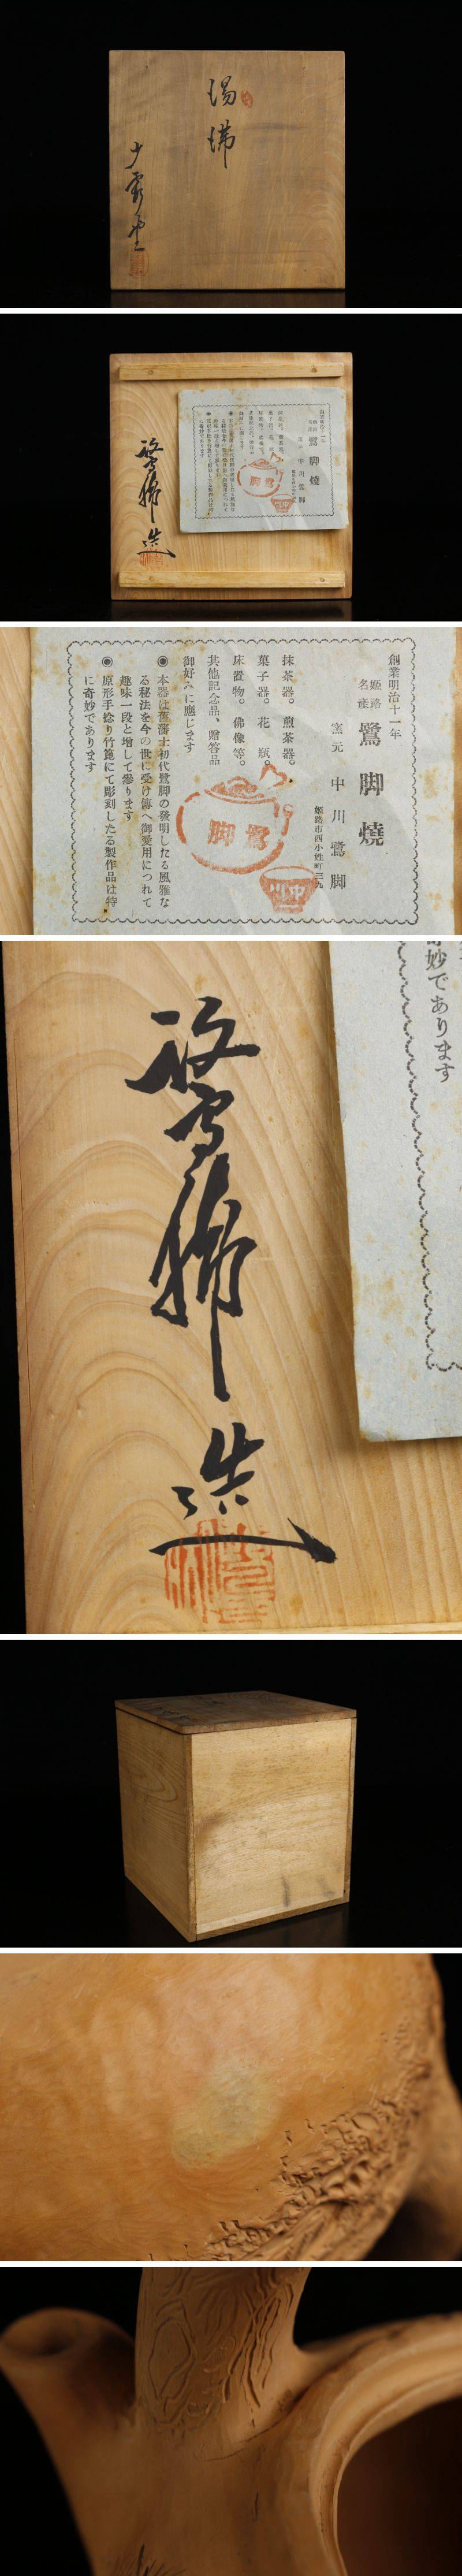 湯沸
鷺脚造
創業明治十一年
姫路
名産
鷺脚燒
窯元 中川鷺脚
姫路市西小姓町三九
抹茶器。煎茶器。
菓子器。花瓶。
床置物。佛像等。
其他記念品、贈答品
御好みに應じます
◉本器は舊藩士初代鷺脚の發明したる風雅な
る秘法を今の世に受け傳へ御愛用につれて
趣味一段と增して參ります
◉原形手捻り竹箆にて彫刻したる製作品は特
に奇妙であります
鷺脚
中川
奇妙であります
鷺脚造